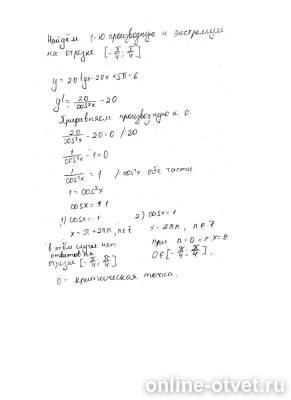 Найдём 1-ю производную и экстремум
на отрезке [-π/4; π/4]
y = 20tgx-20x+5π-6
y' = 20/cos²x - 20
Приравняем производную к 0
20/cos²x - 20 = 0 /:20
1/cos²x - 1 = 0
1/cos²x = 1 /·cos²x обе части
1 = cos²x
cosx = ±1
1) cosx = -1 2) cosx = 1
x = π+2πn, n∈Z x = 2πn, n∈Z
в этом случае нет при n=0 => x=0
ответов на 0∈[-π/4; π/4]
отрезке [-π/4; π/4]
0 - критическая точка.
online-otvet.ru